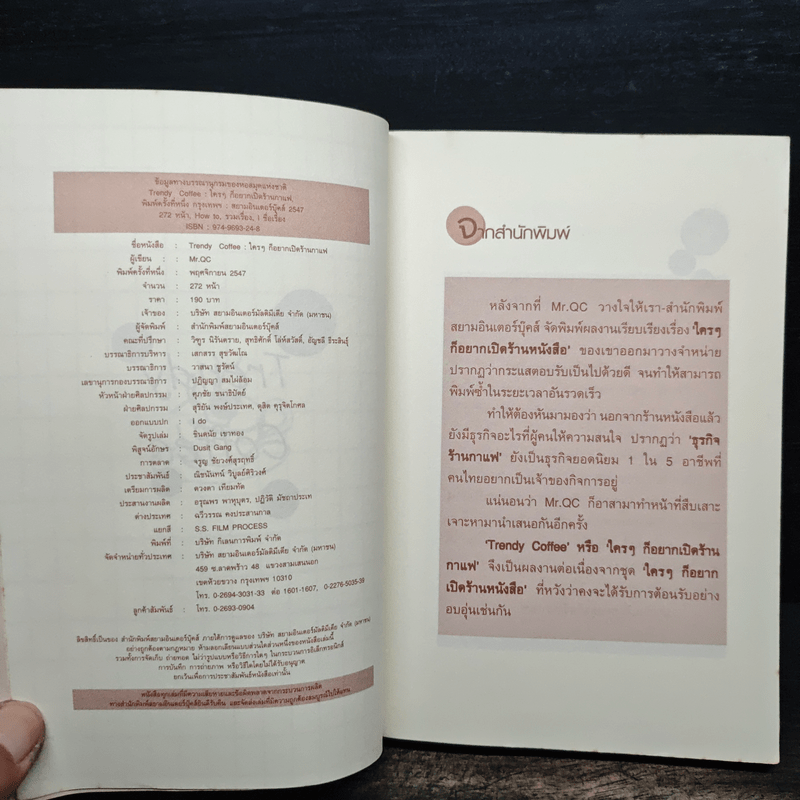 ข้อมูลทางบรรณานุกรมของหอสมุดแห่งชาติ
Trendy Coffee : ใครๆ ก็อยากเปิดร้านกาแฟ.
พิมพ์ครั้งที่หนึ่ง กรุงเทพฯ : สยามอินเตอร์บุ๊คส์ 2547
272 หน้า, How to, รวมเรื่อง, I ชื่อเรื่อง
ISBN : 974-9693-24-6
ชื่อหนังสือ : Trendy Coffee : ใครๆ ก็อยากเปิดร้านกาแฟ
ผู้เขียน : Mr.QC
พิมพ์ครั้งที่หนึ่ง : พฤศจิกายน 2547
จำนวน : 272 หน้า
ราคา : 190 บาท
เจ้าของ : บริษัท สยามอินเตอร์มัลติมีเดีย จำกัด (มหาชน)
ผู้จัดพิมพ์ : สำนักพิมพ์สยามอินเตอร์บุ๊คส์
คณะที่ปรึกษา : วิฑูร นิรันตราย, สุทธิศักดิ์ โล่ห์สวัสดิ์, อัญชลี ธีระสินธุ์
บรรณาธิการบริหาร : เสกสรร สุขวัฒโณ
บรรณาธิการ : วาสนา ชูรัตน์
เลขานุการกองบรรณาธิการ : ปฏิญญา สมไผ่ล้อม
หัวหน้าฝ่ายศิลปกรรม : ศุภชัย ชนาริปัตย์
ฝ่ายศิลปกรรม : สุริยัน พงษ์ประเทศ, ดุสิต คุรุจิตโกศล
ออกแบบปก : I do
จัดรูปเล่ม : ชินดนัย เขาทอง
พิสูจน์อักษร : Dusit Gang
การตลาด : จรูญ ชัยวงศ์สุรฤทธิ์
ประชาสัมพันธ์ : ณิชนันทน์ วิบูลย์ศิริวงศ์
เตรียมการผลิต : ดวงตา เทียมทัด
ประสานงานผลิต : อรุณพร พาหุบุตร, ปฏิวัติ มัชฌาประเท
ต่างประเทศ : ฉวีวรรณ คงประสานกาล
แยกสี : S.S. FILM PROCESS
พิมพ์ที่ : บริษัท กิเลนการพิมพ์ จำกัด
จัดจำหน่ายทั่วประเทศ : บริษัท สยามอินเตอร์มัลติมีเดีย จำกัด (มหาชน)
459 ซ.ลาดพร้าว 48 แขวงสามเสนนอก
เขตห้วยขวาง กรุงเทพฯ 10310
โทร. 0-2694-3031-33 ต่อ 1601-1607, 0-2276-5035-39
ลูกค้าสัมพันธ์ : โทร. 0-2693-0904
ลิขสิทธิ์เป็นของ สำนักพิมพ์สยามอินเตอร์บุ๊คส์ ภายใต้การดูแลของ บริษัท สยามอินเตอร์มัลติมีเดีย จำกัด (มหาชน)
อย่างถูกต้องตามกฎหมาย ห้ามลอกเลียนแบบส่วนใดส่วนหนึ่งของหนังสือเล่มนี้
รวมทั้งการจัดเก็บ ถ่ายทอด ไม่ว่ารูปแบบหรือวิธีการใดๆ ในกระบวนการอิเล็กทรอนิกส์
การบันทึก การถ่ายภาพ หรือวิธีใดโดยไม่ได้รับอนุญาต
ยกเว้นเพื่อการประชาสัมพันธ์หนังสือเท่านั้น
หนังสือทุกเล่มที่มีความเสียหายและข้อผิดพลาดจากกระบวนการผลิต
ทางสำนักพิมพ์สยามอินเตอร์บุ๊คส์ยินดีรับคืน และจัดส่งเล่มที่มีความถูกต้องสมบูรณ์ไปให้แทน
จากสำนักพิมพ์
หลังจากที่ Mr.QC วางใจให้เรา-สำนักพิมพ์
สยามอินเตอร์บุ๊คส์ จัดพิมพ์ผลงานเรียบเรียงเรื่อง 'ใครๆ
ก็อยากเปิดร้านหนังสือ' ของเขาออกมาวางจำหน่าย
ปรากฏว่ากระแสตอบรับเป็นไปด้วยดี จนทำให้สามารถ
พิมพ์ซ้ำในระยะเวลาอันรวดเร็ว
ทำให้ต้องหันมามองว่า นอกจากร้านหนังสือแล้ว
ยังมีธุรกิจอะไรที่ผู้คนให้ความสนใจ ปรากฏว่า 'ธุรกิจ
ร้านกาแฟ' ยังเป็นธุรกิจยอดนิยม 1 ใน 5 อาชีพที่
คนไทยอยากเป็นเจ้าของกิจการอยู่
แน่นอนว่า Mr.QC ก็อาสามาทำหน้าที่สืบเสาะ
เจาะหามานำเสนอกันอีกครั้ง
'Trendy Coffee' หรือ 'ใครๆ ก็อยากเปิดร้าน
กาแฟ' จึงเป็นผลงานต่อเนื่องจากชุด 'ใครๆ ก็อยาก
เปิดร้านหนังสือ' ที่หวังว่าคงจะได้รับการต้อนรับอย่าง
อบอุ่นเช่นกัน